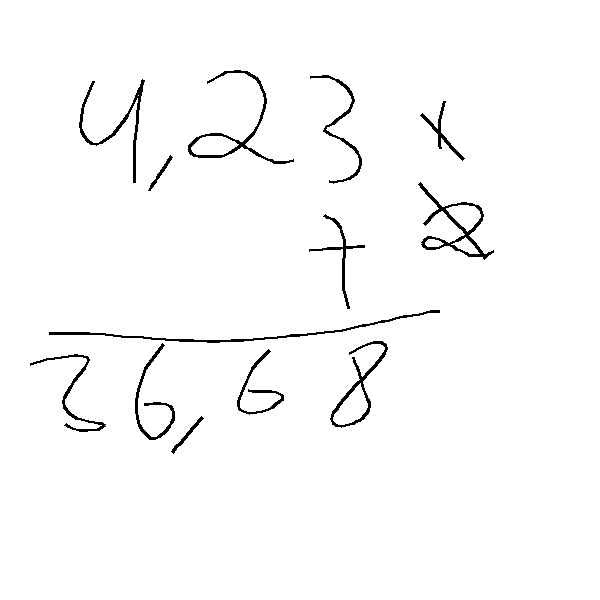 4,23 x
7
36,68